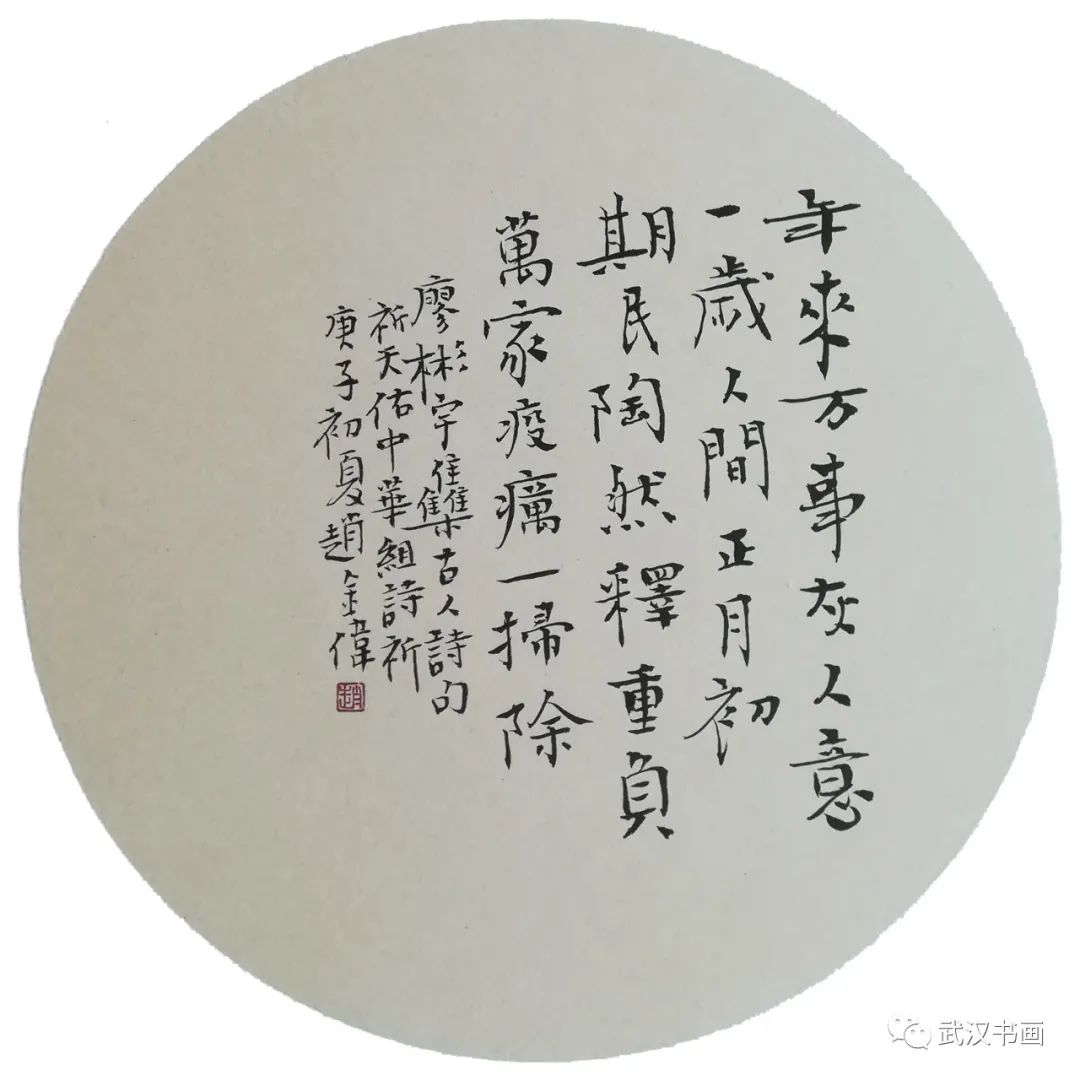 年來万事灰人意
一歲人間正月初
期民陶然釋重負
萬家疫癘一掃除
廖彬宇集古人詩句
祈天佑中華組詩祈
庚子初夏趙金偉
趙
武汉书画